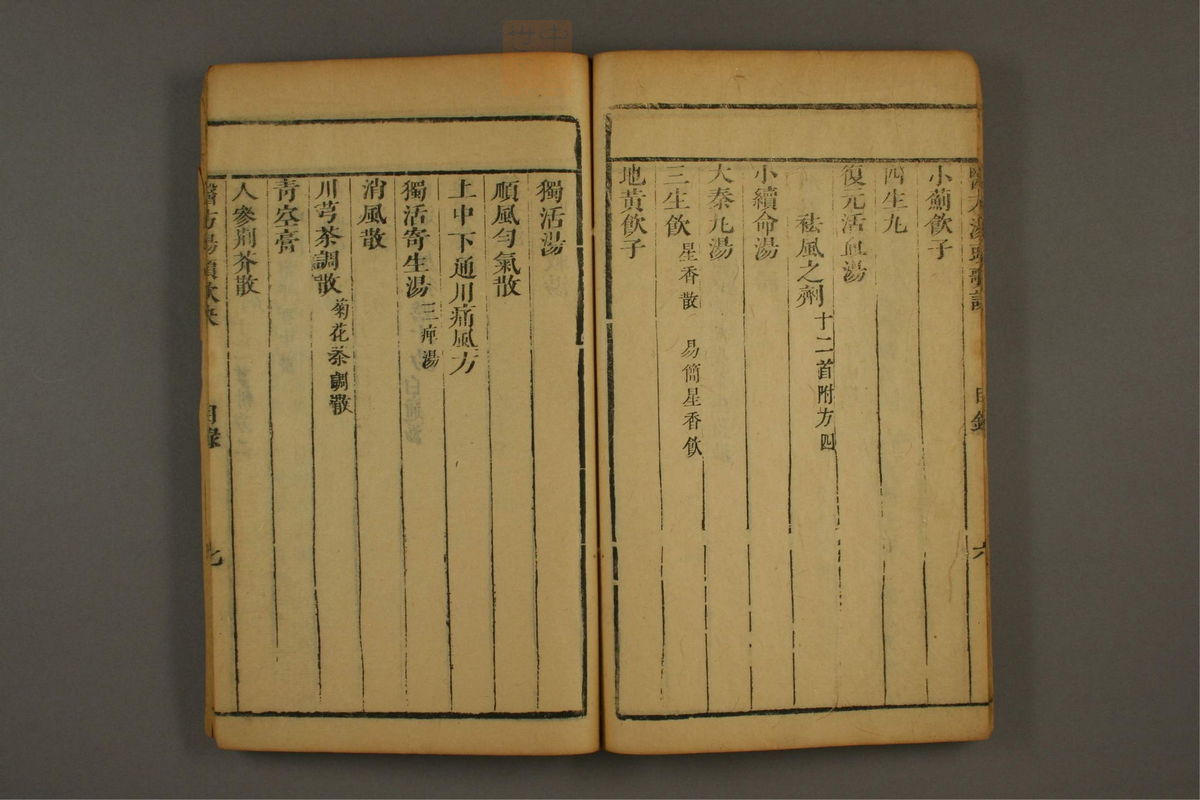 醫方湯頭歌訣 目錄 六
小薊飲子
四生丸
復元活血湯
祛風之劑 十二首附方四
小續命湯
大秦艽湯
三生飲 星香散 易簡星香飲
地黃飲子
獨活湯
順風勻氣散
上中下通用痛風方
獨活寄生湯 三痺湯
消風散
川芎茶調散 菊花茶調散
青空膏
人參荆芥散
醫方湯頭歌訣 目錄 七